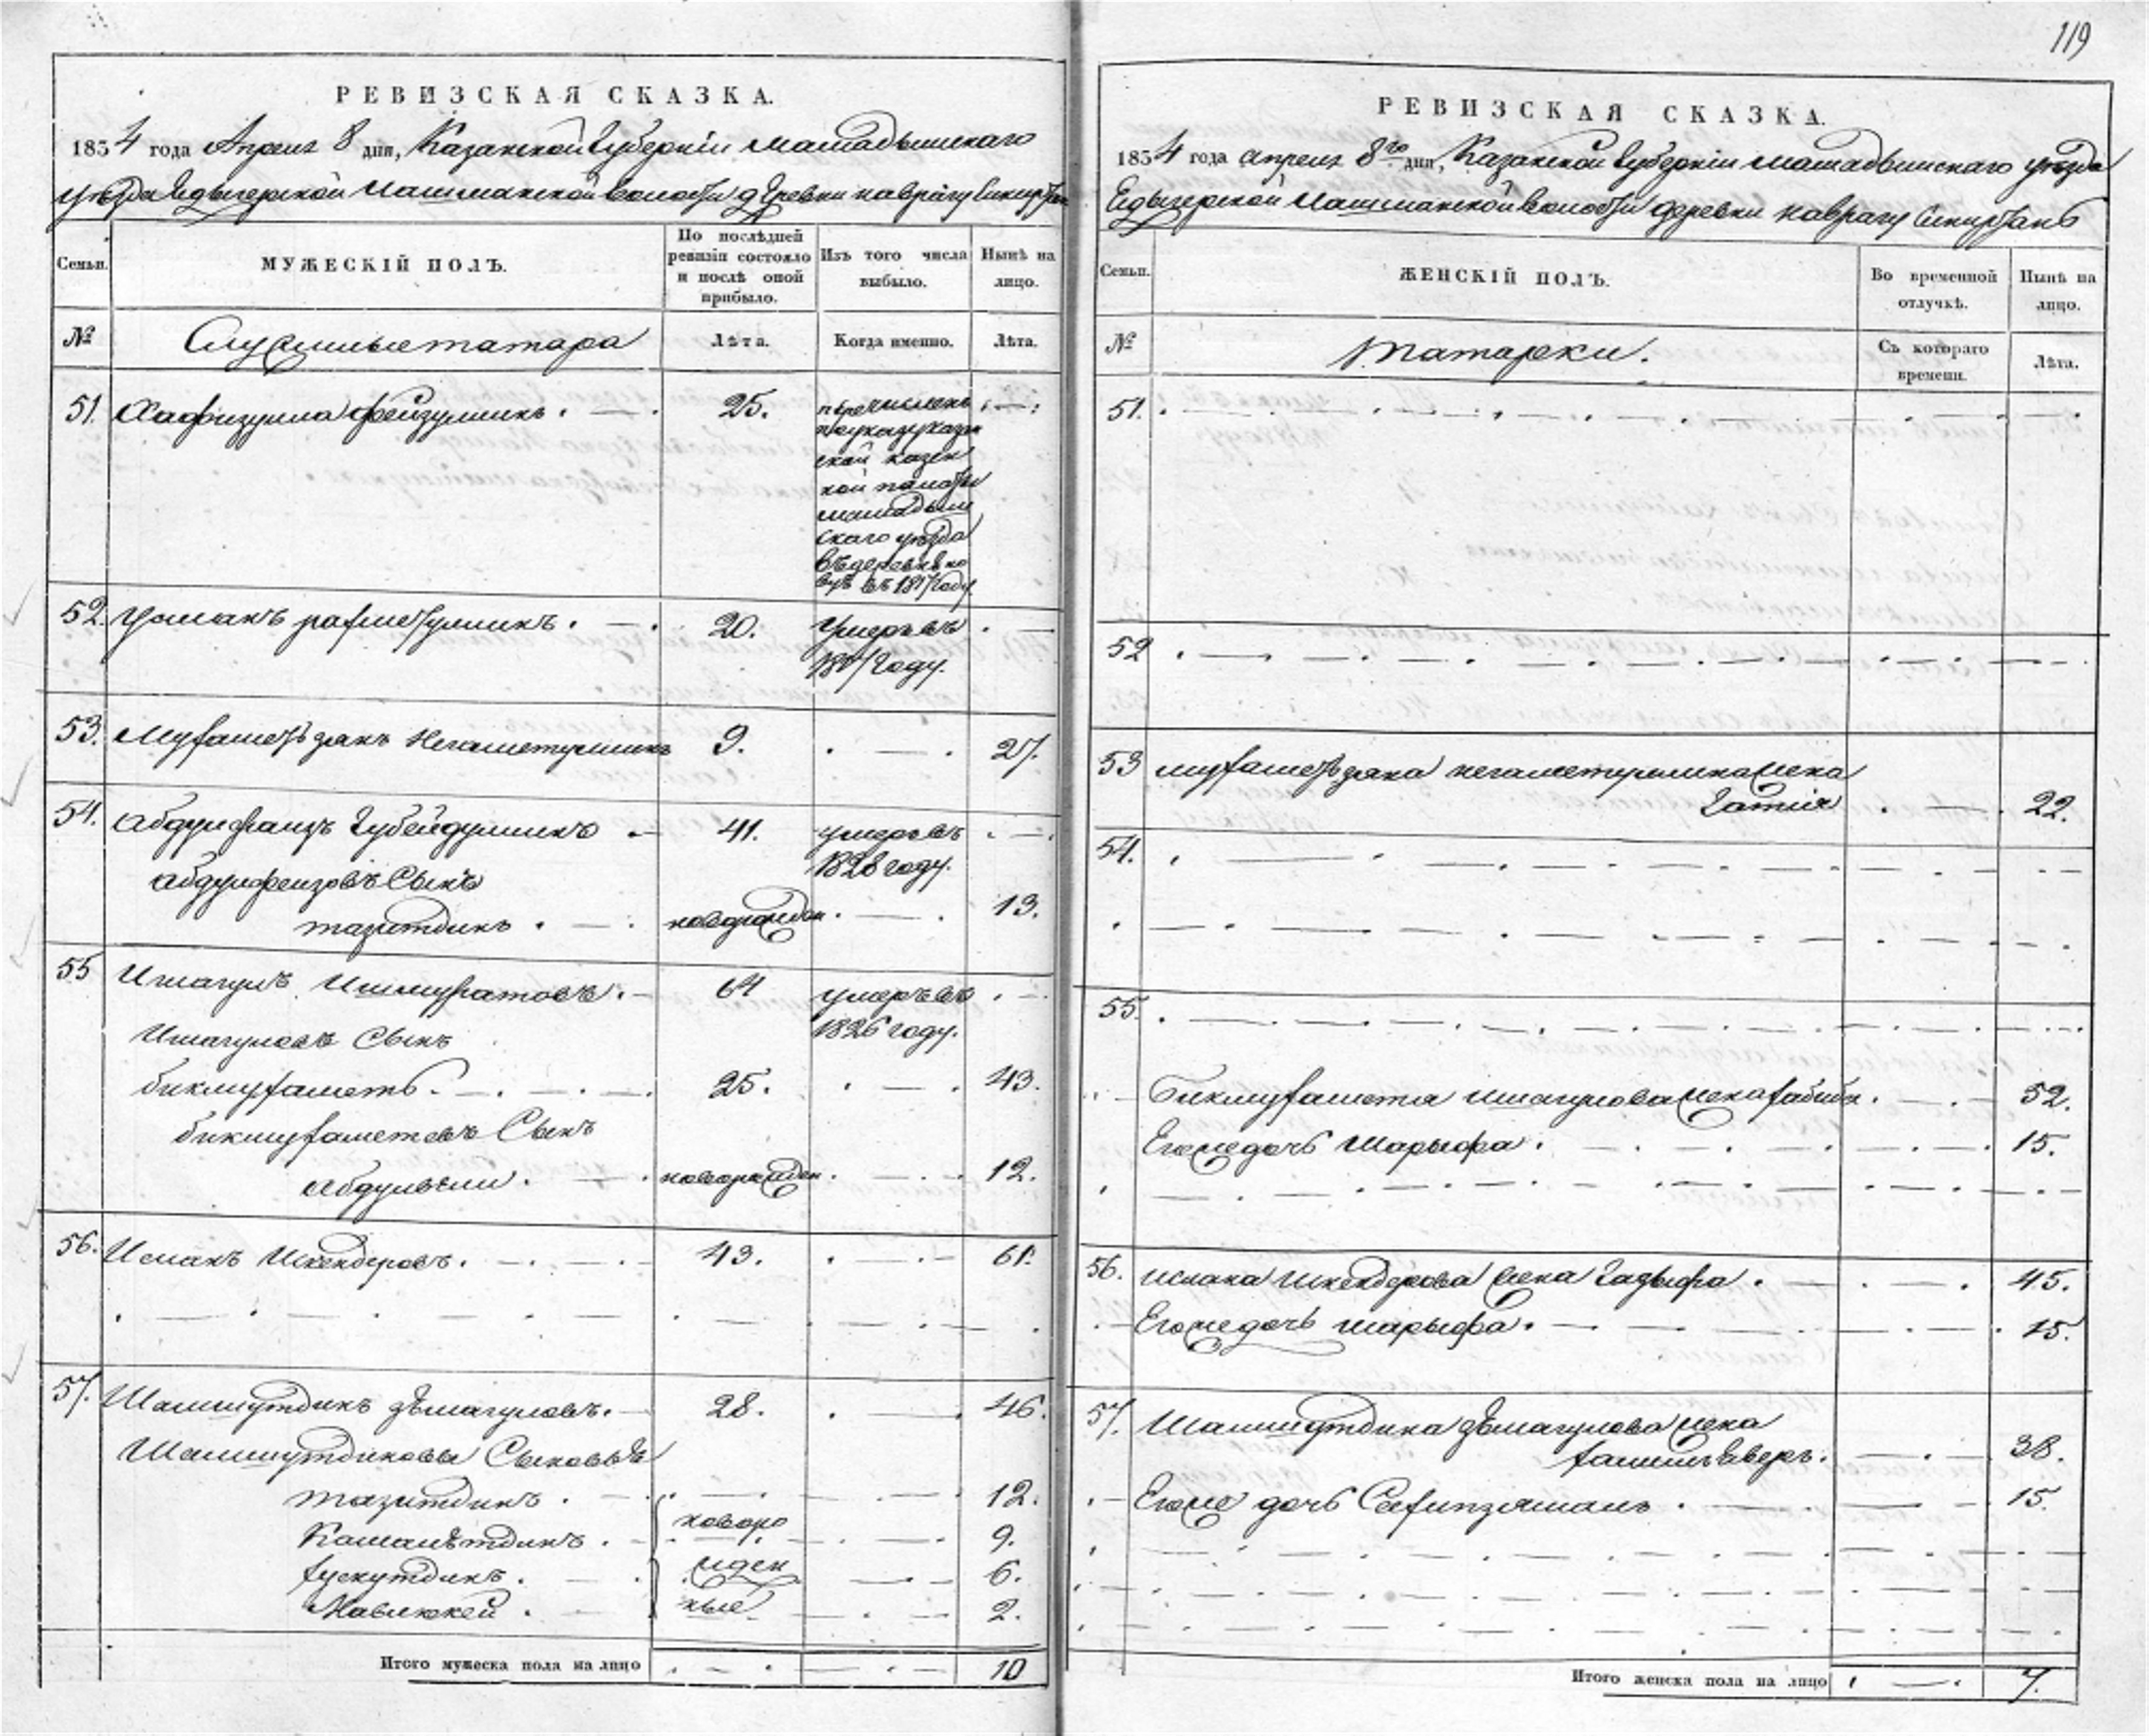 119
РЕВИЗСКАЯ СКАЗКА.
1834 года Апреля 8 дня, Казанской Губерніи Мамадышскаго
уѣзда Едыгерской Чашманской волости деревни
Семьи.
МУЖЕСКІЙ ПОЛЪ.
По послѣдней ревизіи состояло и послѣ оной прибыло.
Изъ того числа выбыло.
Нынѣ на лицо.
№
Служилые татара
Лѣта.
Когда именно.
Лѣта.
51. Хафизулла Фейзуллинъ. 25. перечисленъ
по указу казан
ской казен
ной палаты
мамадыш
скаго уѣзда
въ деревню
въ 1817 году
52. Усманъ рахметуллинъ. 20. Умеръ въ
году.
53. Мухаметзянъ Негаметуллинъ 9. 27.
54. Абдулфаизъ Губейдуллинъ 41. умеръ въ
1828 году.
абдулфеизовъ Сынъ
тазитдинъ. новорожден. 13.
55 Ишагулъ Ишмуратовъ. 64 умеръ въ
1826 году.
Ишагуловъ Сынъ
бикмухаметь. 25. 43.
бикмухаметевъ Сынъ
абдулвели. новорожден. 12.
56. Исмакъ Искендеровъ. 43. 61.
57. Шамшутдинъ 28. 46.
Шамшутдиновы Сыновья
тазитдинъ. 12.
Камалѣтдинъ. новоро 9.
жден 6.
Мавлюкей. ные 2.
Итого мужеска пола на лицо 10
РЕВИЗСКАЯ СКАЗКА.
1834 года апреля 8го дня, Казанской Губерніи Мамадышскаго уѣзда
Едыгерской Чашманской волости деревни
Семьи.
ЖЕНСКІЙ ПОЛЪ.
Во временной отлучкѣ.
Нынѣ на лицо.
№
Татарки.
Съ котораго времени.
Лѣта.
51.
52
53 мухаметзяна негаметуллина жена
Гатия 22.
54.
55.
Бикмухаметя ишагулова жена хабиба. 52.
Его же дочь Шарыфа. 15.
56. Исмака Искендерова жена 45.
Его же дочь шарыфа. 15.
57. Шамшутдина жена
38.
Его же дочь 15.
Итого женска пола на лицо 7.